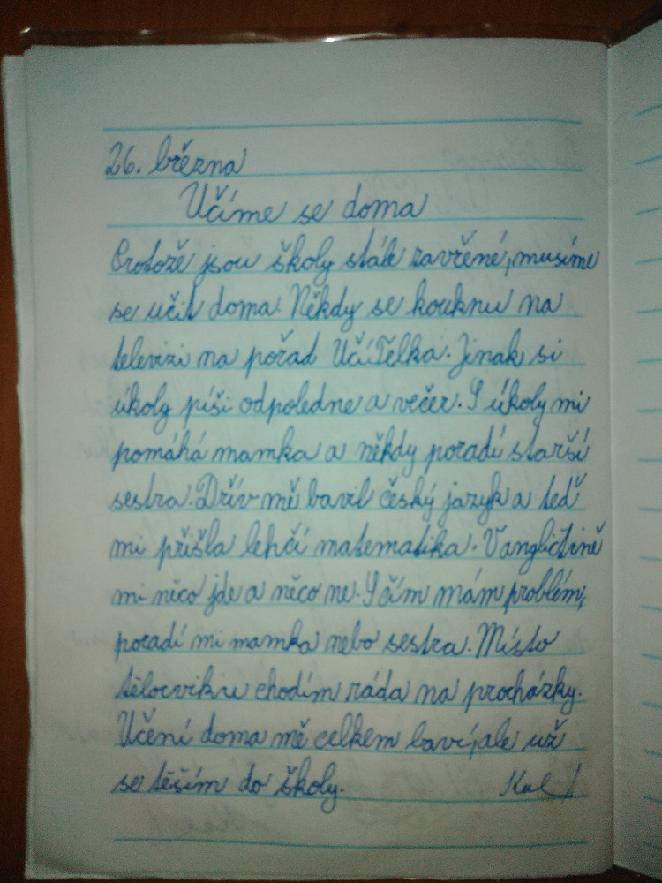 26. března
Učíme se doma
Protože jsou školy stále zavřené, musíme
se učit doma. Někdy se kouknu na
televizi na pořad UčíTelka. Jinak si
úkoly píši odpoledne a večer. S úkoly mi
pomáhá mamka a někdy poradí starší
sestra. Dřív mě bavil český jazyk a teď
mi přišla lehčí matematika. V angličtině
mi něco jde a něco ne. S čím mám problém,
poradí mi mamka nebo sestra. Místo
tělocviku chodím ráda na procházky.
Učení doma mě celkem baví, ale už
se těším do školy.